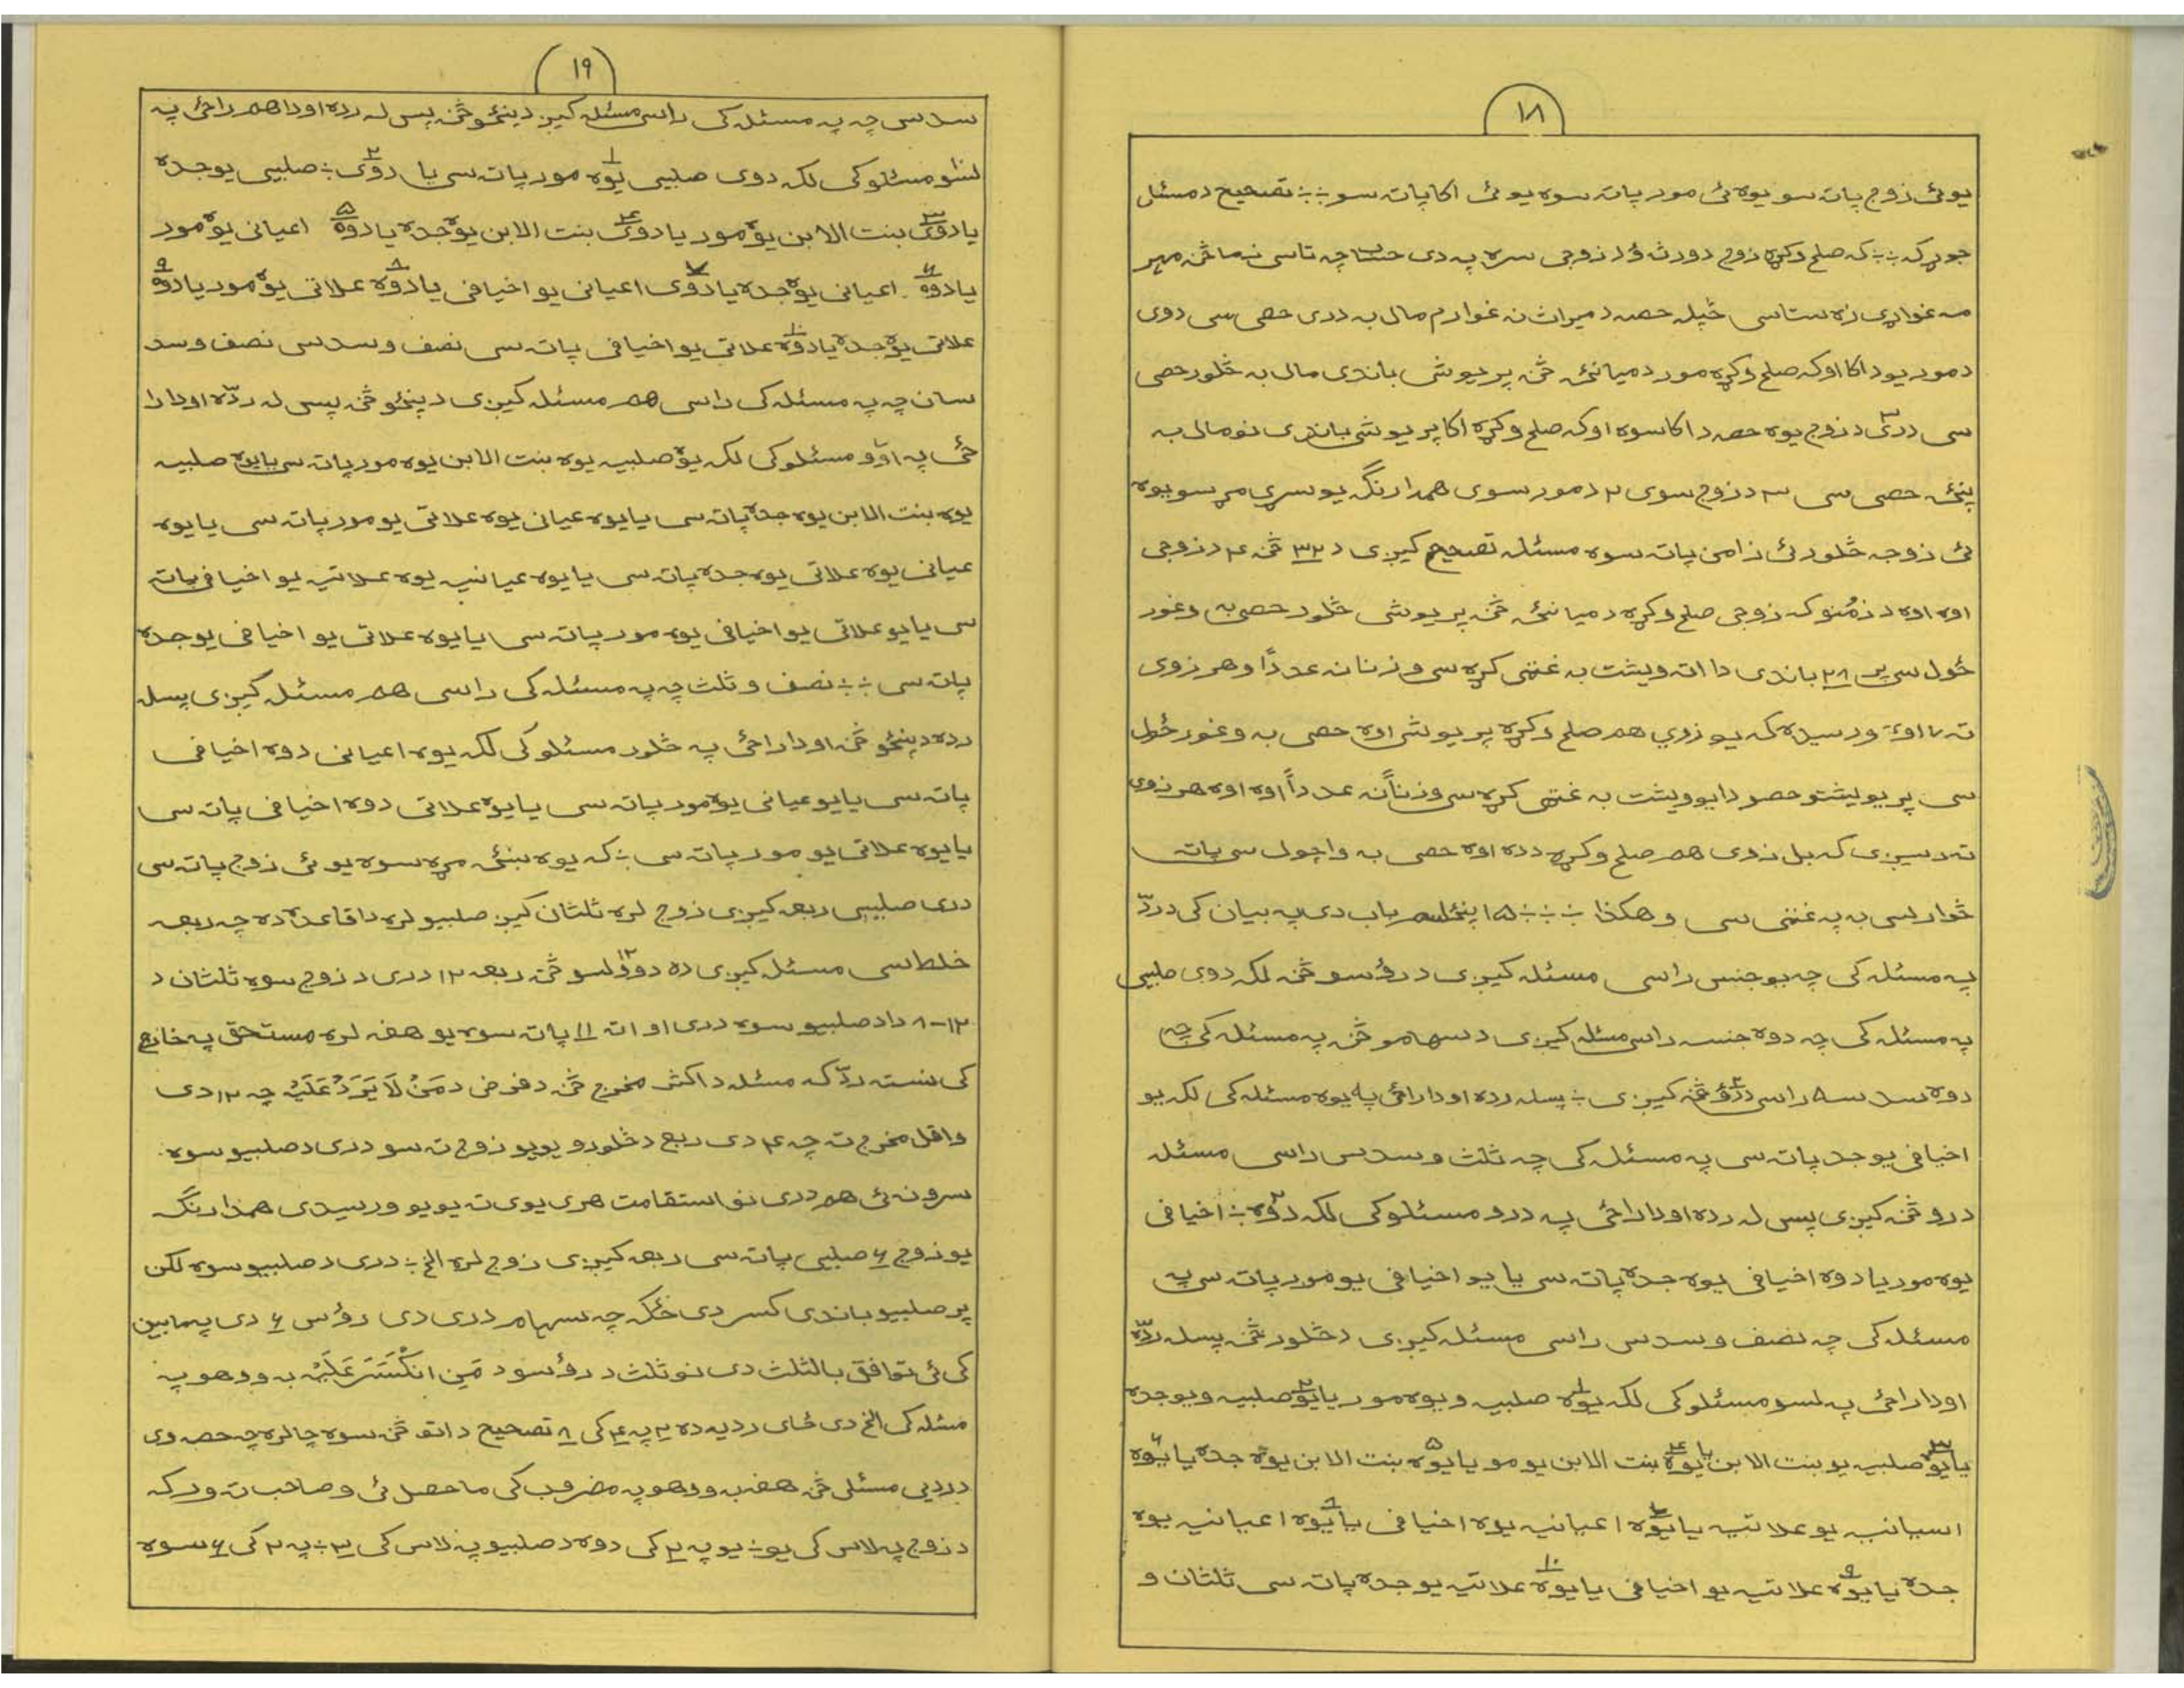 ١٨
يوئی زوج پاته سو يوه ئی مور پاته سوه يو ئی اکا پاته سو ÷÷ تصحيح د مسئلې
جوړ که ÷÷ که صلح وکړه زوج د ورثؤ د زوجی سره په دی حساب چه تاسی زما څنه مهر
مه غواړی زه ستاسی څپله حصه د ميراث نه غواړم مال به دری حصی سی دوی
د مور يو د اکا او که صلح وکړه مور د ميانځه څنه پر يو شی باندی مال به څلور حصی
سی دری ٣ د زوج يوه حصه د اکا سوه او که صلح وکړه اکا پر يو شی باندی نو مال به
پنځه حصی سی ٣ د زوج سوی ٢ د مور سوی همدارنګه يو سړی مړ سو يوه
ئی زوجه څلور ئی زامن پاته سوه مسئله تصحيح کيږی د ٣٢ څنه ٤ د زوجی
اوه اوه د زمنو که زوجی صلح وکړه د ميانځه څنه پر يو شی څلور حصی به وغور
ځول سی پر ٢٨ باندی دا اته ويشت به غنمی کړه سی وزنا نه عددًا وهر زوی
ته ٧ اوه ورسيده که يو زوی هم صلح وکړه پر يو شی اوه حصی به وغورځول
سی پر يوليشتو حصو دا يوويشت به غنمی کړه سی وزناً نه عدداً اوه اوه هر زوی
ته رسيږی که بل زوی هم صلح وکړه دده اوه حصی به واچول سی پاته
څوارلسی به په غنمی سی وهکذا ÷ ÷ ÷ ١٥ پنځلسم باب دی په بيان کی د ردّ
په مسئله کی چه يو جنس راسی مسئله کيږی د رؤسو څنه لکه دوی صلبيی
په مسئله کی چه دوه جنسه راسی مسئله کيږی د سهامو څنه په مسئله کی چه
دوه سدسه راسی د دوؤ ٢ څنه کيږی ÷ پسله رده او دا راځی په يوه مسئله کی لکه يو
اخيافی يو جده پاته سی په مسئله کی چه ثلث و سدس راسی مسئله
د رو څنه کيږی پس له رده او دا راځی په درو مسئلو کی لکه دوه ٢ ÷ اخيافی
يوه مور يا دوه اخيافی يوه جده پاته سی يا يو اخيافی يو مور پاته سی په
مسئله کی چه نصف و سدس راسی مسئله کيږی د څلور څنه پسله ردّه
او دا راځی په لسو مسئلو کی لکه يوه ١ صلبيه و يوه مور يا يوه ٢ صلبيه و يو جده
يا يوه ٣ صلبيه يو بنت الابن يا يوه ٤ بنت الابن يو مو يا يوه ٥ بنت الابن يوه جده يا يوه ٦
اعيانيه يو علاتيه يا يوه ٧ اعيانيه يوه اخيافی يا يوه ٨ اعيانيه يوه
جده يا يوه ٩ علاتيه يو اخيافی يا يوه ١٠ علاتيه يو جده پاته سی ثلثان و
١٩
سدس چه په مسئله کی راسی مسئله کيږ د پنځو څنه پس له رده او دا هم راځی په
لسو مسئلو کی لکه دوی صلبيی يوه ١ مور پاته سی يا دوی ٢ ÷ صلبيی يو جده
يا دوی ٣ بنت الابن يوه مور يا دوی ٤ بنت الابن يوه جده يا دوه ٥ اعيانی يوه مور
يا دوه ٦ اعيانی يوه جده يا دوی ٧ اعيانی يو اخيافی يا دوه ٨ علاتی يوه مور يا دوه ٩
علاتی يوه جده يا دوه ١٠ علاتی يو اخيافی پاته سی نصف و سدسی نصف و سد
سان چه په مسئله کی راسی هم مسئله کيږی د پنځو څنه پس له ردّه او دا را
ځی په اوو مسئلو کی لکه يوه صلبيه يوه بنت الابن يوه مور پاته سی يا يوه صلبيه
يوه بنت الابن يوه جده پاته سی يا يوه عيانی يوه علاتی يو مور پاته سی يا يوه
عيانی يوه علاتی يوه جده پاته سی يا يوه عيانيه يوه علاتيه يو اخيافی پاته
سی يا يو علاتی يو اخيافی يوه مور پاته سی يا يوه علاتی يو اخيافی يو جده
پاته سی ÷÷ نصف و ثلث چه په مسئله کی راسی هم مسئله کيږی پسله
رده د پنځو څنه او دا راځی په څلور مسئلو کی لکه يوه اعيانی دوه اخيافی
پاته سی يا يو عيانی يوه مور پاته سی يا يوه علاتی دوه اخيافی پاته سی
يا يوه علاتی يو مور پاته سی ÷ که يوه ښځه مړه سوه يو ئی زوج پاته سی
دری صلبيی ربعه کيږی زوج لره ثلثان کيږ صلبيو لره دا قاعده ده چه ربعه
خلط سی مسئله کيږی ده دوولسو ١٢ څنه ربعه ١٢ دری د زوج سوه ثلثان د
١٢-٨ دا د صلبيو سوه دری او اته ١١ پاته سوه يو هغه لره مستحق په خارج
کی نسته ردّ که مسئله د اکثر مخرج څنه د فرض د مَنْ لَا يُرَدُّ عَلَيْهِ چه ١٢ دی
و اقل مخرج ته چه ٤ دی ربع د څلورو يو يو زوج ته سو دری د صلبيو سوه
سرونه ئی هم دری نو استقامت هری يوی ته يو يو ورسيدی همدارنګه
يو زوج ٦ صلبيی پاته سی ربعه کيږی زوج لره الخ ÷ دری د صلبيو سوه لکن
پر صلبيو باندی کسر دی ځکه چه سهام دری دی رؤس ٦ دی په مابين
کی ئی توافق بالثلث دی نو ثلث د رؤسو د مَنِ انْکَسَرَ عَلَيْهِ به ووهو په
مسئله کی الخ دی ځای رديه ده ٢ په ٤ کی ٨ تصحيح د اتو څنه سوه چا لره چه حصه وی
د رديی مسئلی څنه هغه به ووهو په مضروب کی ماحصل ئی و صاحب ته ورکه
د زوج په لاس کی يو ÷ يو په ٢ کی دوه د صلبيو په لاس کی ٣ ÷ په ٢ کی ٦ سوه